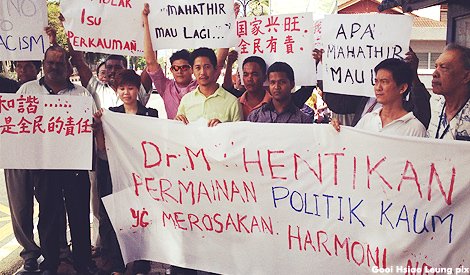 NO
RACISM
ISU
PERKAUMAN..
MAHATHIR
MAU LAGI...
国家兴旺,
全民有責.
APA
MAHATHIR
MAU
和諧......
是全民的責任
Dr.M : HENTIKAN
PERMAINAN POLITIK KAUM
YG MEROSAKAN HARMONI
Gooi Hsiao Leung pix